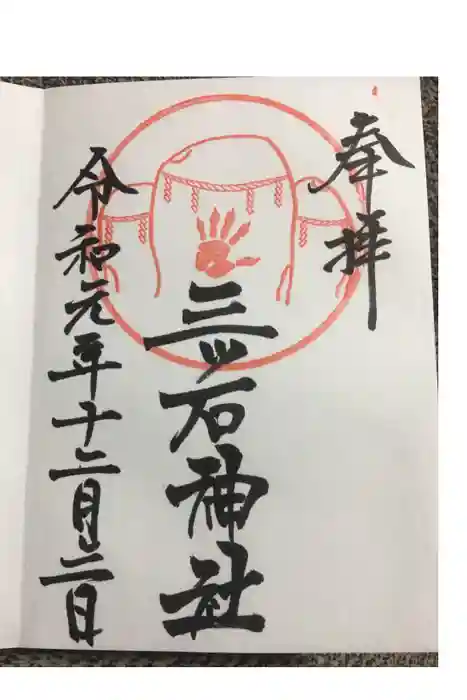 奉拝
三ツ石神社
令和元年十二月二日